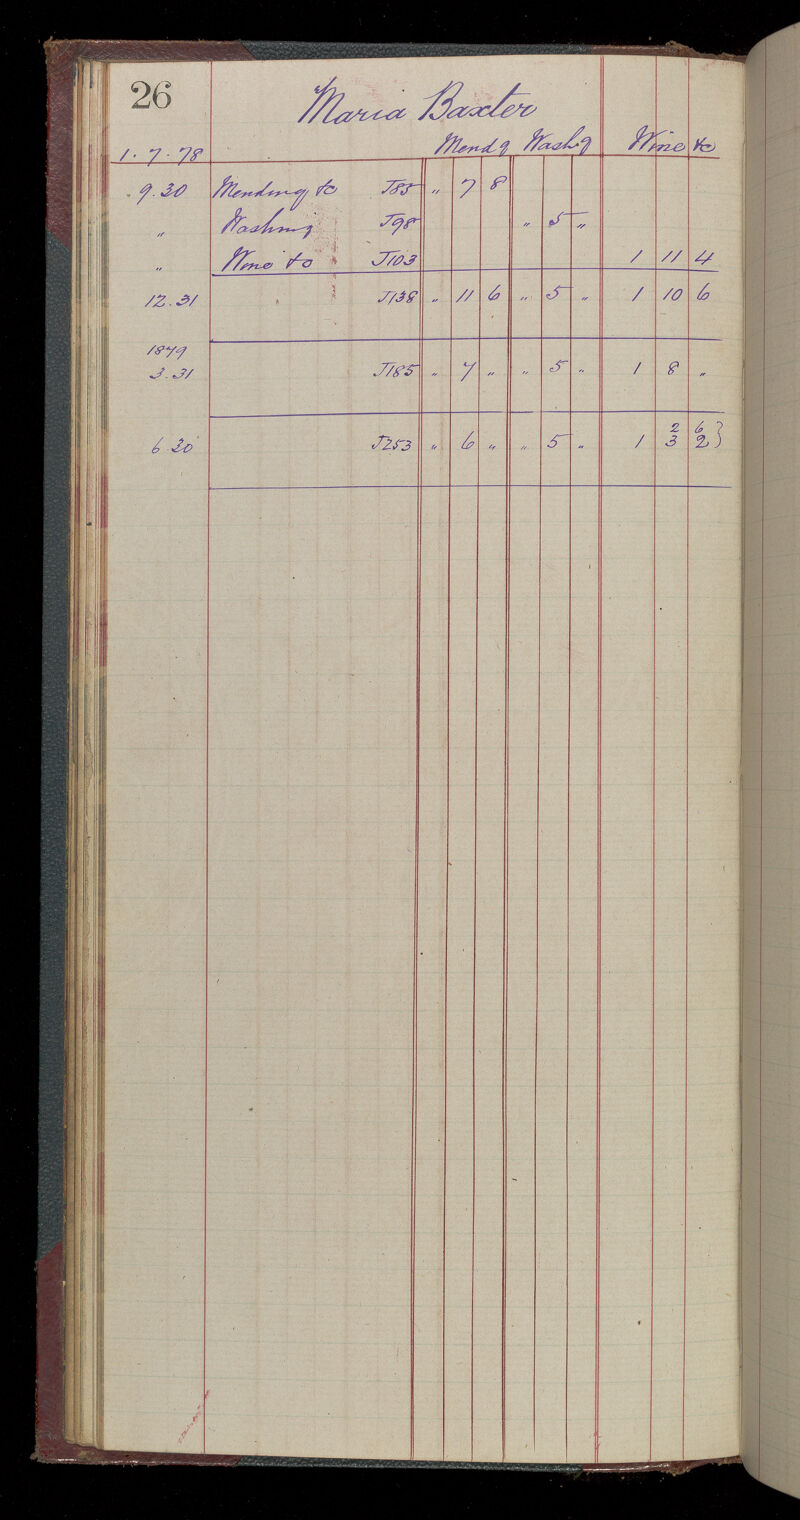 26
Maria Baxter
1.7.78 Mendg Washg Wine &c
9.30 Mending &c J85 " 7 8
" Washing J98 " 5 "
" Wine &c J103 1 11 4
12.31 J138 " 11 6 " 5 " 1 10 6
1879
3.31 J185 " 7 " " 5 " 1 8 "
2 6 }
6.30 J253 " 6 " " 5 " 1 3 2